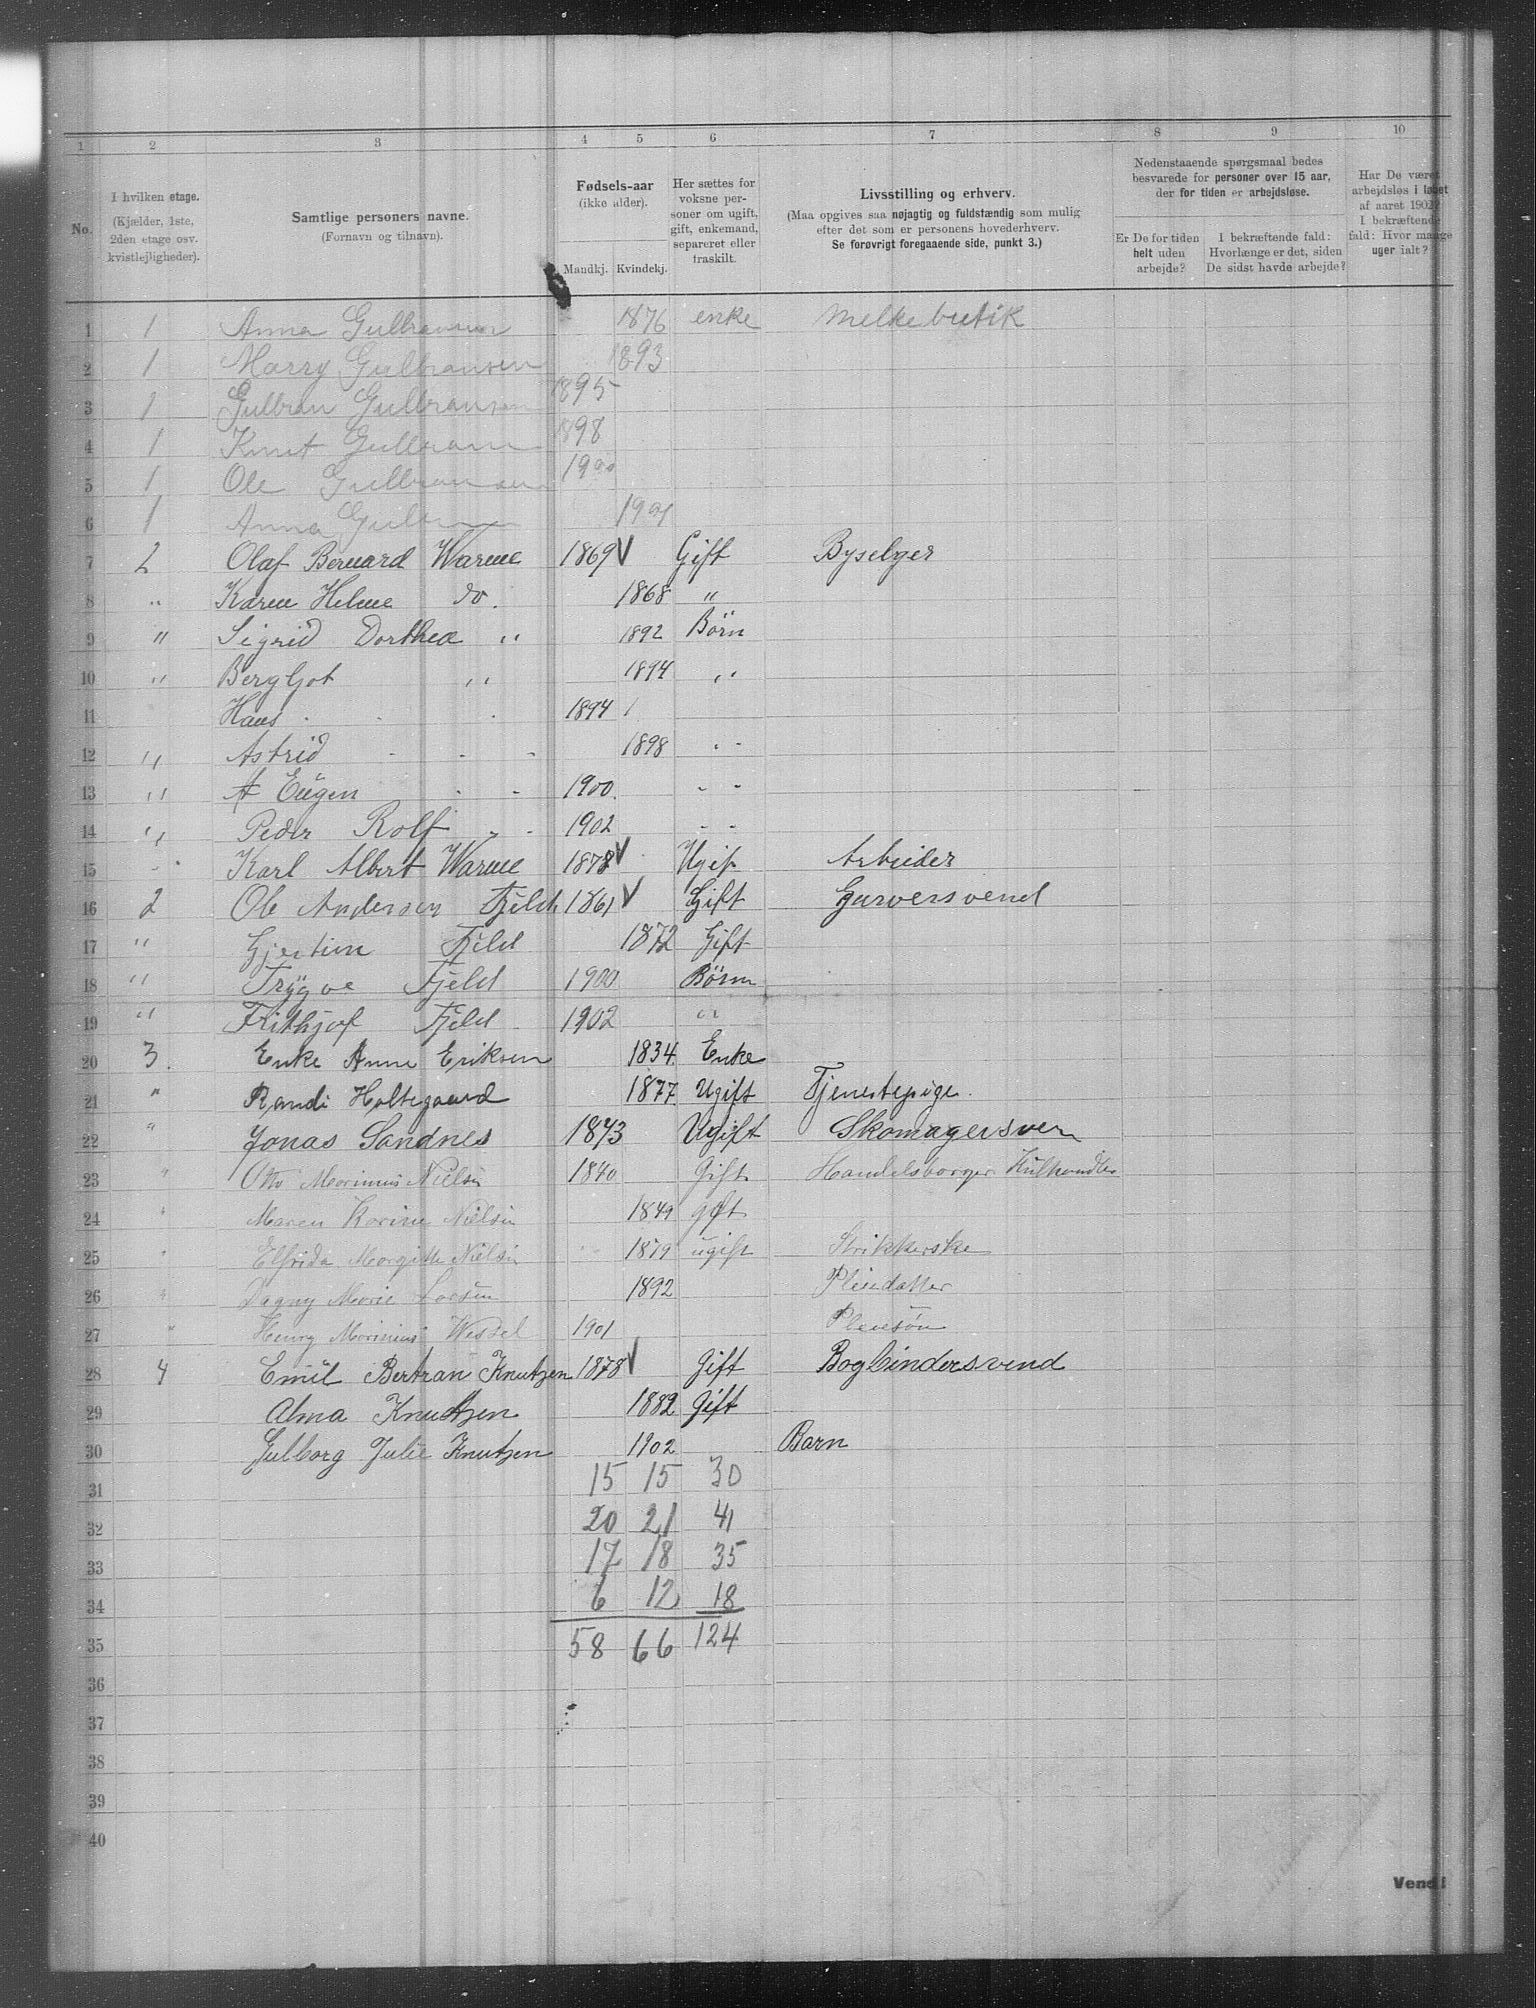 1 2 3 4 5 6 7 8 9 10
No.
I hvilken etage. (Kjælder, 1ste, 2den etage osv. kvistlejligheder).
Samtlige personers navne. (Fornavn og tilnavn).
Fødsels-aar (ikke alder). Mandkj. Kvindekj.
Her sættes for voksne personer om ugift, gift, enkemand, separeret eller fraskilt.
Livsstilling og erhverv. (Maa opgives saa nøjagtig og fuldstændig som mulig efter det som er personens hovederhverv. Se forøvrigt foregaaende side, punkt 3.)
Nedenstaaende spørgsmaal bedes besvarede for personer over 15 aar, der for tiden er arbejdsløse.
Er De for tiden helt uden arbejde?
I bekræftende fald: Hvorlænge er det, siden De sidst havde arbejde?
Har De været arbejdsløs i løbet af aaret 1902? I bekræftende fald: Hvor mange uger ialt?
1 1 Anna Gulbransen 1876 enke Melkebutik
2 1 Marry Gulbransen 1893
3 1 Gulbran Gulbransen 1895
4 1 Knut Gulbrans 1898
5 1 Ole Gulbransen 1900
6 1 Anna 1901
7 2 Olaf Bernard Warme 1869 V Gift Byselger
8 " Karen Helme do. 1868 "
9 " Sigrid Dorthea " 1892 Börn
10 " Bergljot " 1894 "
11 Hans 1894
12 " Astrid 1898 "
13 " A Eugen 1900 "
14 " Peder Rolf " 1902 "
15 " Karl Albert Warme 1878 V Ugift Arbeider
16 2 Ole Andersen Fjeld 1861 V Gift Garversvend
17 " Gjertine Fjeld 1872 Gift
18 " Trygve Fjeld 1900 Börn
19 " Frithjof Fjeld 1902 "
20 3. Enke Anne Eriksen 1834 Enke
21 " Randi Holtegaard 1877 Ugift Tjenestepige.
22 " Jonas Sandnes 1873 Ugift Skomagersven
23 " Otto Marinius Nielsen 1840 Gift Handelsborger Kulhandler
24 " Maren Karine Nielsen 1849 gift
25 " Elfrida Margitte Nielsen 1879 ugift Strikkerske
26 " Dagny Marie Larsen 1892 Pleiedatter
27 " Henry Marinius Wessel 1901 Pleiesön
28 4 Emil Bertran Knutzen 1878 V Gift Bogbindersvend
29 Alma Knutzen 1882 Gift
30 Gulborg Julie Knutzen 1902 Barn
31 15 15 30
32 20 21 41
33 17 18 35
34 6 12 18
35 58 66 124
36
37
38
39
40
Vend!